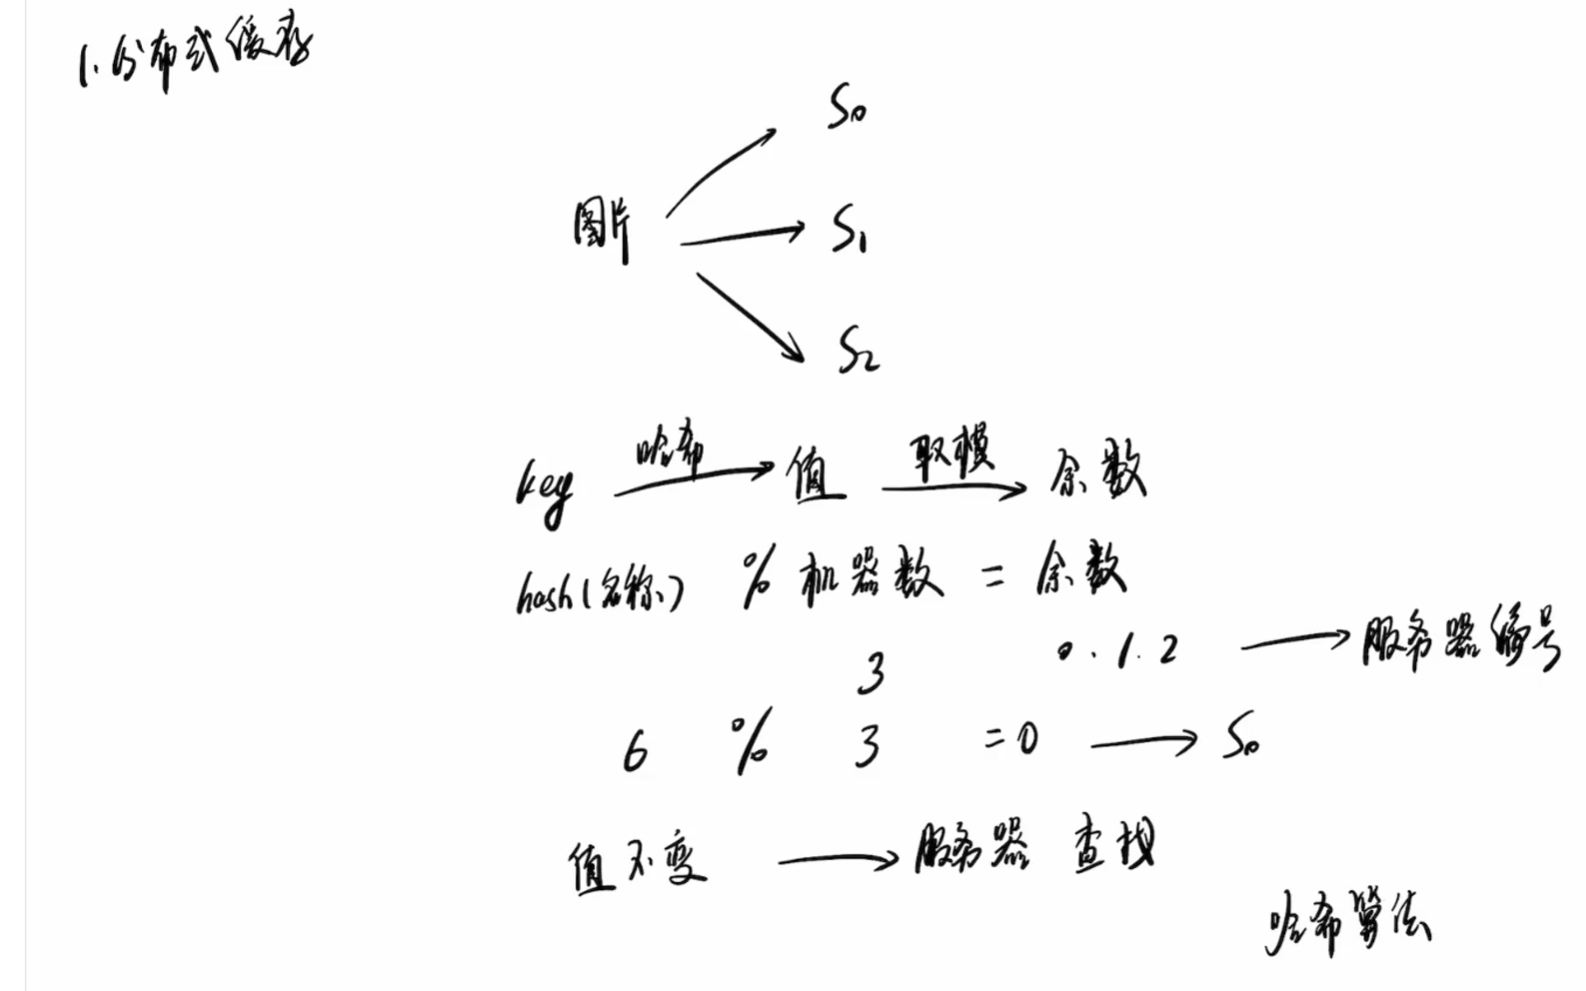 1.分布式缓存
S0
图片
S1
S2
key 哈希 值 取模 余数
hash(名称) % 机器数 = 余数
3 0.1.2 服务器编号
6 % 3 =0 S0
值不变 服务器 查找
哈希算法